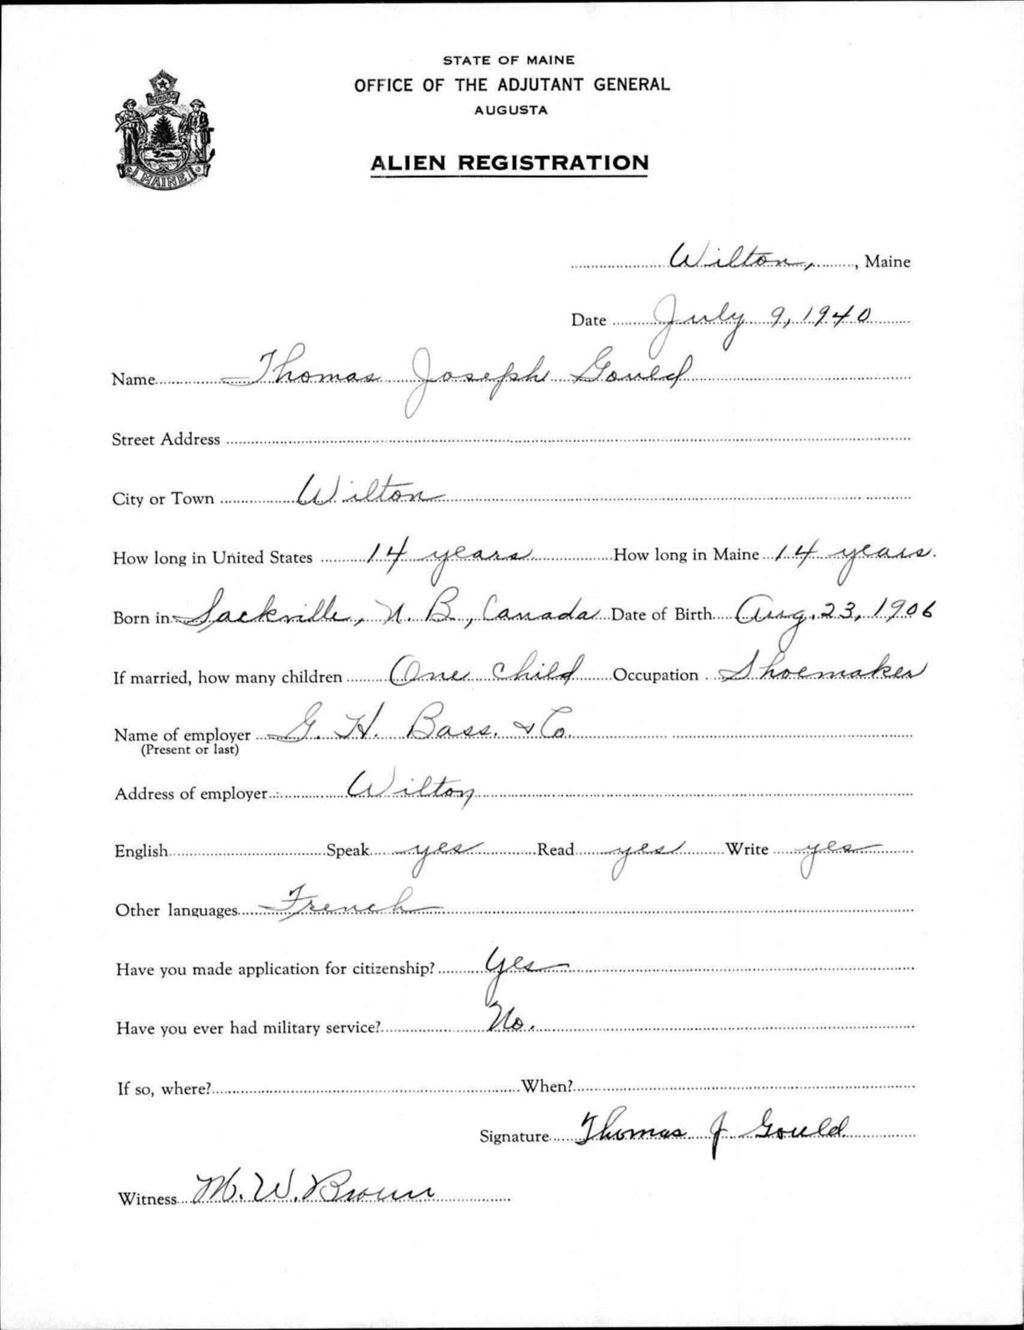 STATE OF MAINE
OFFICE OF THE ADJUTANT GENERAL
AUGUSTA
ALIEN REGISTRATION
MAINE
Wilton, , Maine
Date July 9, 1940
Name Thomas Joseph Gould
Street Address
City or Town Wilton
How long in United States 14 years How long in Maine 14 years.
Born in Sackville, N. B., Canada Date of Birth Aug. 23, 1906
If married, how many children One child Occupation Shoemaker
Name of employer G. H. Bass. & Co.
(Present or last)
Address of employer Wilton
English Speak yes Read yes Write yes
Other languages French
Have you made application for citizenship? Yes
Have you ever had military service? No.
If so, where? When?
Signature Thomas J Gould
Witness M. W. Brown